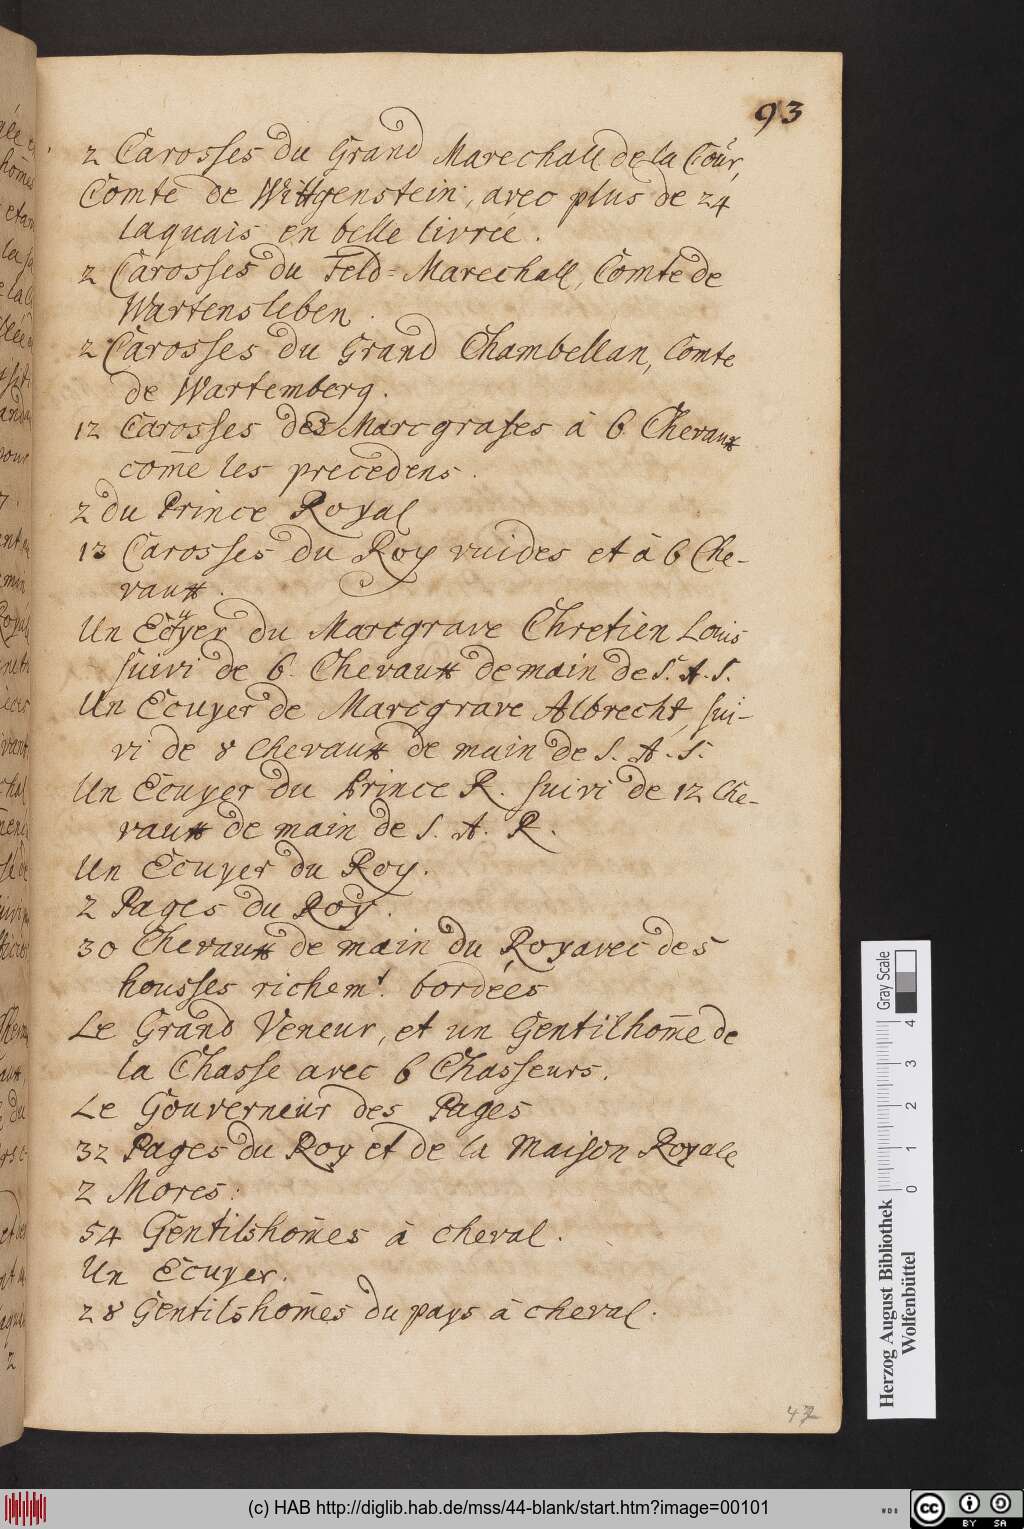 93
2 Carosses du Grand Marechall de la Coúr,
Comte de Wittgenstein, avec plus de 24
laquais en belle livrée.
2 Carosses du Feld=Marechall, Comte de
Wartensleben.
2 Carosses du Grand Chambellan, Comte
de Wartemberg.
12 Carosses des Marcgrafes à 6 Chevaux
com̄e les precedens.
2 du Prince Royal
13 Carosses du Roy vuides et à 6 Che-
vaux.
Un Ecuyer du Marcgrave Chretien Louis
suivi de 6. Chevaux de main de S. A. S.
Un Ecuyer de Marcgrave Albrecht, sui-
vi de 8 chevaux de main de S. A. S.
Un Ecuyer du Prince R. suivi de 12 Che-
vaux de main de S. A. R.
Un Ecuyer du Roy.
2 Pages du Roy.
30 Chevaux de main du Roy avec des
housses richemt. bordées
Le Grand Veneur, et un Gentilhom̄e de
la Chasse avec 6 Chasseurs.
Le Gouverneur des Pages
32 Pages du Roy et de la Maison Royale
2 Mores:
54 Gentilshom̄es à cheval.
Un Ecuyer.
28 Gentilshom̄es du pays à cheval.
Herzog August Bibliothek
Wolfenbüttel
Gray Scale
0 1 2 3 4
(c) HAB http://diglib.hab.de/mss/44-blank/start.htm?image=00101
cc BY SA